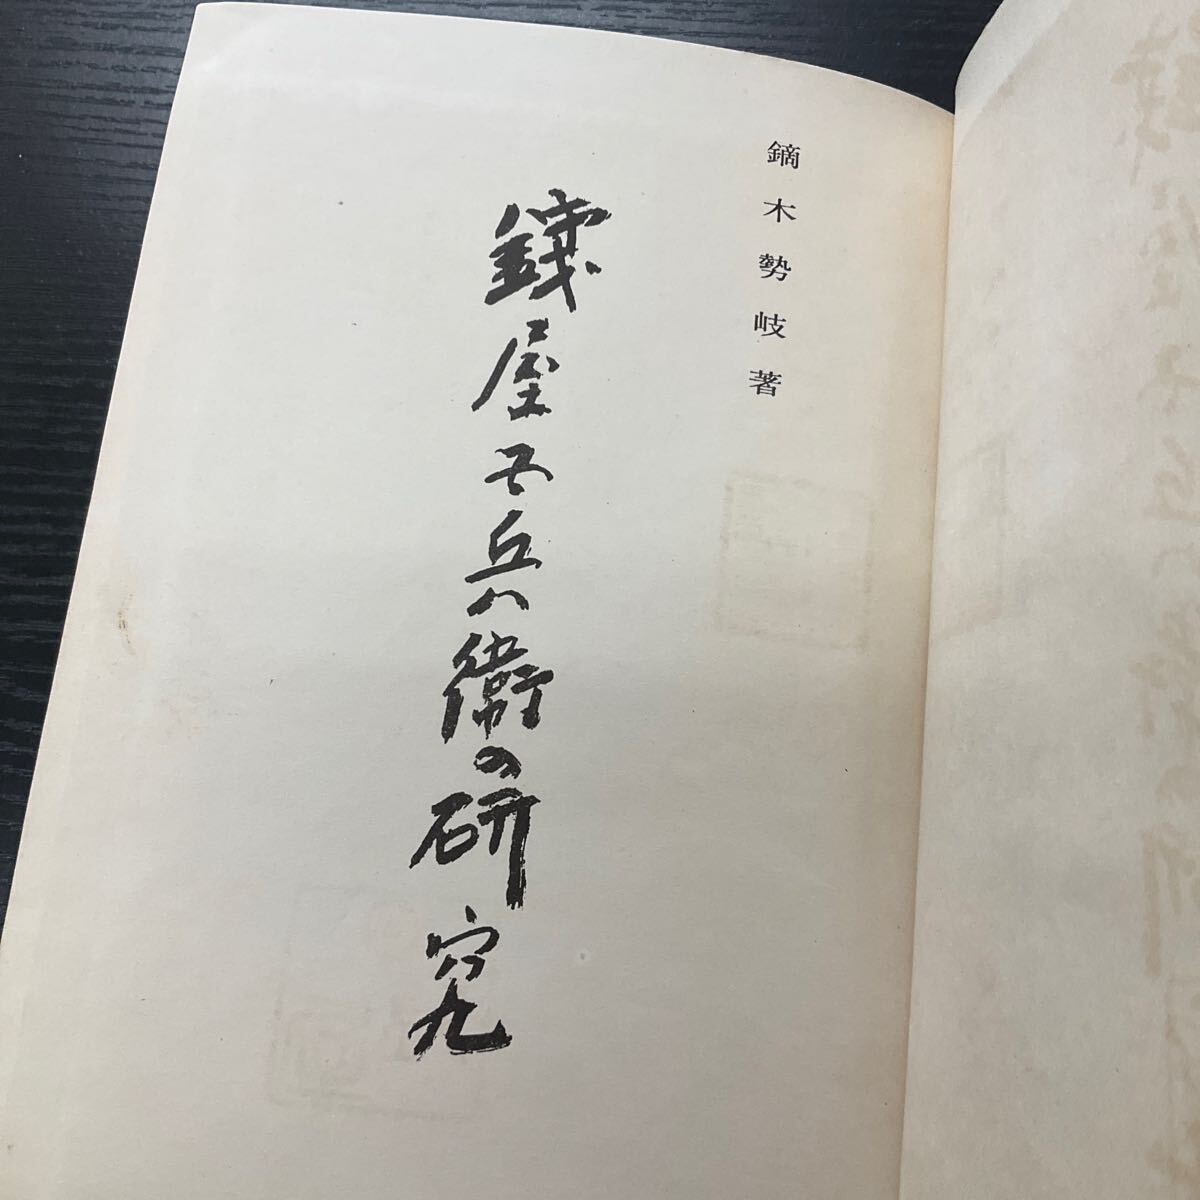 鏑木勢岐著
錢屋五兵衛の研究